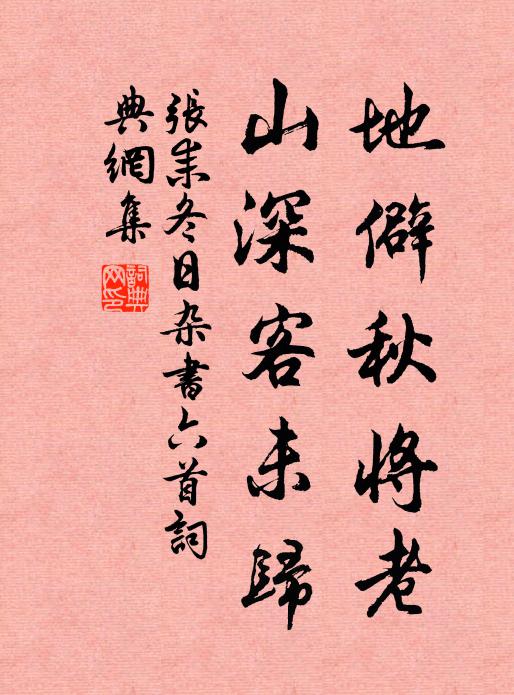 地僻秋將老
山深客未歸
張耒冬日杂書六首詞
典網集
詞典网印